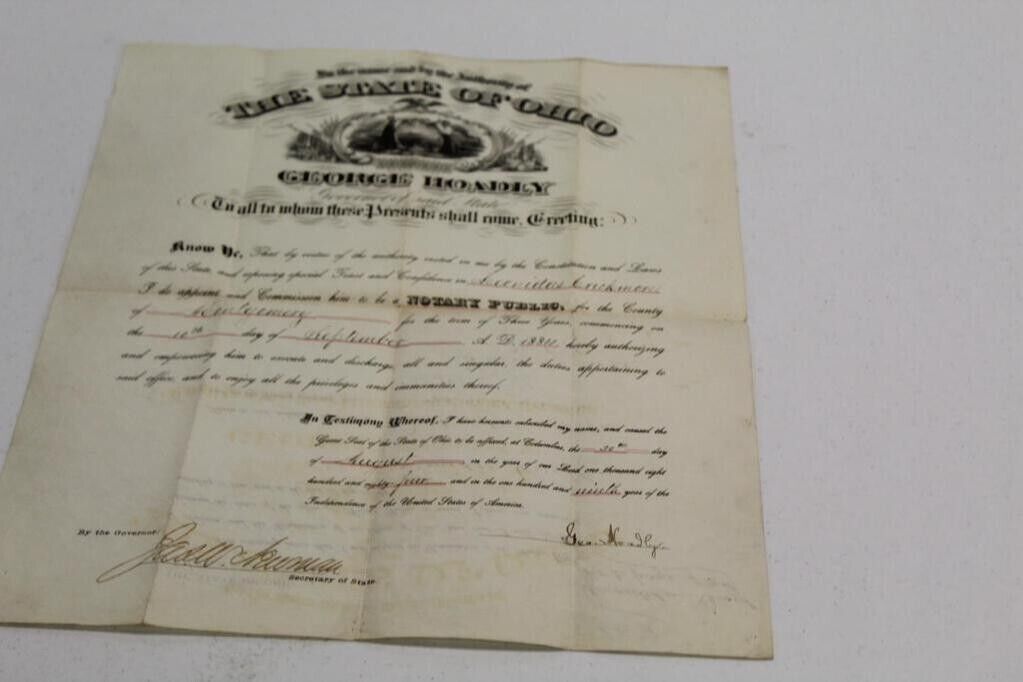 In the name and by the Authority of
THE STATE OF OHIO
GEORGE HOADLY
Governor of said State
To all to whom these Presents shall come, Greeting:
Know Ye, That by virtue of the authority vested in me by the Constitution and Laws
of this State, and reposing special Trust and Confidence in Leonidas
I do appoint and Commission him to be a NOTARY PUBLIC, for the County
of Montgomery for the term of Three Years, commencing on
the 10th day of September A. D. 1884, hereby authorizing
and empowering him to execute and discharge, all and singular, the duties appertaining to
said office, and to enjoy all the privileges and immunities thereof.
In Testimony Whereof, I have hereunto subscribed my name, and caused the
Great Seal of the State of Ohio to be affixed, at Columbus, the 30th day
of August in the year of our Lord one thousand eight
hundred and eighty-four and in the one hundred and ninth year of the
Independence of the United States of America.
Geo. Hoadly
By the Governor:
Jas. W. Newman
Secretary of State.